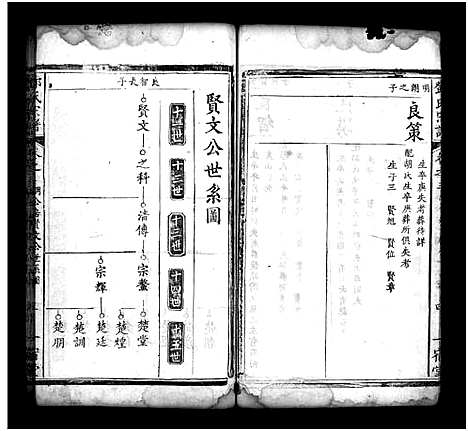 明朗之子
良策
生卒庚失考葬待詳
配胡氏生卒庚葬所俱失考
生子三 賢旭 賢位 賢章
賢文公世系圖
十一世
十二世
十三世
十四世
十五世
良智長子
賢文
之科
濤傳
宗鰲
楚堂
楚煌
宗輝
楚廷
楚訓
楚朋